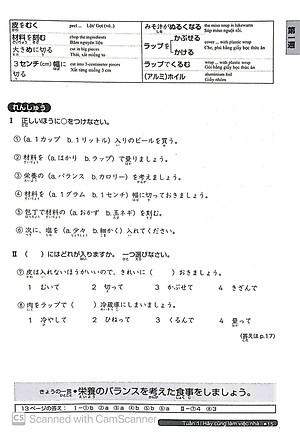 皮をむく
peel ... Lột/ Gọt (vỏ.)
材料を刻む
chop the ingredients
Băm nguyên liệu
大きめに切る
cut in big pieces
Thái, xắt miếng to
3センチ(cm)に切る
cut into 3-centimeter pieces
Xắt từng miếng 3 cm
みそ汁がぬるくなる
the miso soup is lukewarm
Súp miso nguội rồi.
ラップを かぶせる かける
cover ... with plastic wrap
Che, phủ bằng giấy bọc thức ăn
ラップでくるむ
wrap ... with plastic wrap
Gói bằng giấy bọc thức ăn
(アルミ)ホイル
aluminium foil
Giấy nhôm
第一週
れんしゅう
I 正しいほうに○をつけなさい。
①(a. 1カップ b. 1リットル)入りのビールを買う。
②材料を(a. はかり b. ラップ)で量りましょう。
③栄養の(a. バランス b. カロリー)を考えましょう。
④材料を(a. 1グラム b. 1センチ)幅に切っておきましょう。
⑤包丁で材料の(a. おかず b. 玉ネギ)を刻む。
⑥次に、塩を(a. 少々 b. 細かく)入れてください。
II ( )にはどれが入りますか。一つ選びなさい。
⑦皮は入れないほうがいいので、きれいに( )おきましょう。
1 むいて 2 切って 3 かぶせて 4 きざんで
⑧肉をラップで( )冷蔵庫にしまいましょう。
1 冷やして 2 ひねって 3 くるんで 4 量って
(答えは p.17)
きょうの一言 栄養のバランスを考えた食事をしましょう。
13ページの答え:I-①b ②a ③a ④b ⑤b ⑥a II-⑦4 ⑧3
Tuần 1: Hãy cùng làm việc nhà 15
CS Scanned with CamScanner